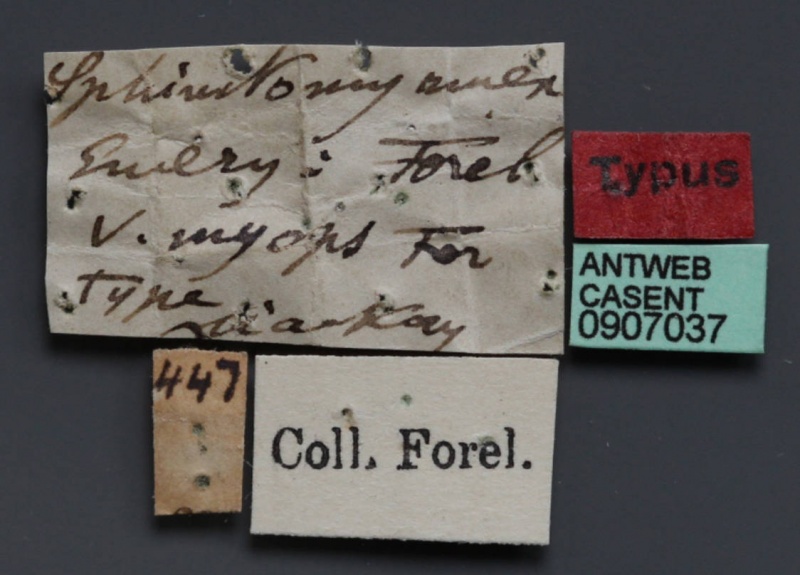 Sphinctomyrmex
Emery: Forel
v. myops For
Type
Mackay
Typus
ANTWEB
CASENT
0907037
447
Coll. Forel.